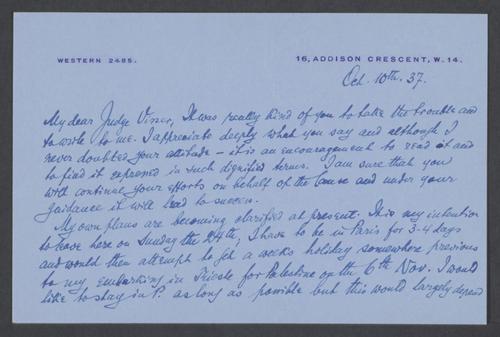 WESTERN 2485.
16, ADDISON CRESCENT, W. 14.
Oct. 10th. 37.
My dear Judge Viner, It was really kind of you to take the trouble and
to write to me. I appreciate deeply what you say and although I
never doubted your attitude – it is an encouragement to read it and
to find it expressed in such dignified terms. I am sure that you
will continue your efforts on behalf of the Cause and under your
guidance it will lead to success.
My own plans are becoming clarified at present. It is my intention
to leave here on Sunday the 24th, I have to be in Paris for 3-4 days
and would then attempt to get a weeks holiday somewhere previous
to my embarking in Trieste for Palestine on the 6th Nov. I would
like to stay in P. as long as possible but this would largely depend